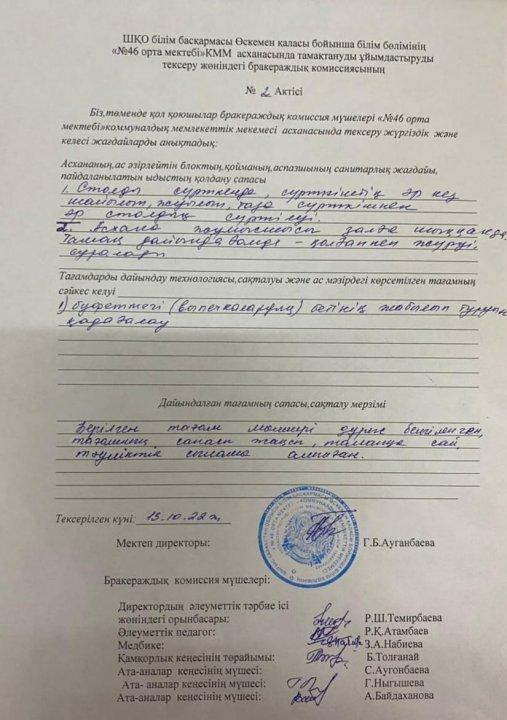 ШҚО білім басқармасы Өскемен қаласы бойынша білім бөлімінің
«№46 орта мектебі»КММ асханасында тамақтануды ұйымдастыруды
тексеру жөніндегі бракераждық комиссиясының
№ 2 Актісі
Біз,төменде қол қоюшылар бракераждық комиссия мүшелері «№46 орта
мектебі»коммуналдық мемлекеттік мекемесі асханасында тексеру жүргіздік және
келесі жағдайларды анықтадық:
Асхананың,ас әзірлейтін блоктың,қойманың,аспазшының санитарлық жағдайы,
пайдаланылатын ыдыстың қолдану сапасы
1. Столды сүрткенде, сүрткіштің әр кез
шайылып, жуылып, таза сүрткішпен
әр столдың сүртілуі.
2. Асхана жұмысшысы залға шыққанда,
тамақ дайындағанда - қолғаппен жүруі
сұралады
Тағамдарды дайындау технологиясы,сақталуы және ас мәзірдегі көрсетілген тағамның
сәйкес келуі
1) буфеттегі бетінің жабылып тұруын
қадағалау
Дайындалған тағамның сапасы,сақталу мерзімі
Берілген тағам мөлшері дұрыс белгіленген,
тағамның сапасы жақсы, талапқа сай,
тәуліктік сынама алынған.
Тексерілген күні: 13.10.22ж
Мектеп директоры: Г.Б.Ауганбаева
Бракераждық комиссия мүшелері:
Директордың әлеуметтік тәрбие ісі
жөніндегі орынбасары: Р.Ш.Темирбаева
Әлеуметтік педагог: Р.Қ.Атамбаев
Медбике: З.А.Набиева
Қамқорлық кеңесінің төрайымы: Б.Толғанай
Ата-аналар кеңесінің мүшесі: С.Аугонбаева
Ата- аналар кеңесінің мүшесі: Г.Ныгышева
Ата-аналар кеңесінің мүшесі: А.Байдаханова